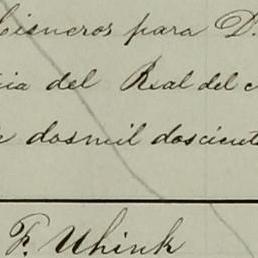 Cisneros para D.
cia del Real del
dosmil doscient
F. Uhink